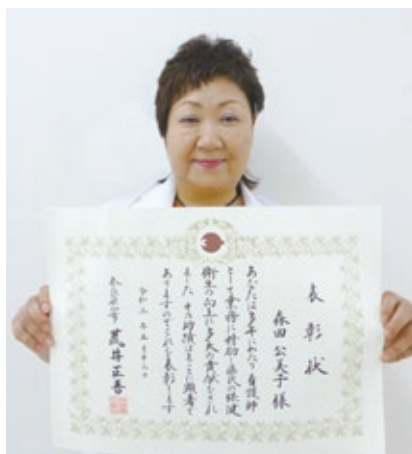 表彰状
森田公美子様
あなたは多年にわたり看護師
として業務に精励し県民の保健
衛生の向上に多大の貢献をされ
ました その功績はまことに顕著で
ありますのでこれを表彰します
令和三年五月十二日
奈良県知事 荒井正吾